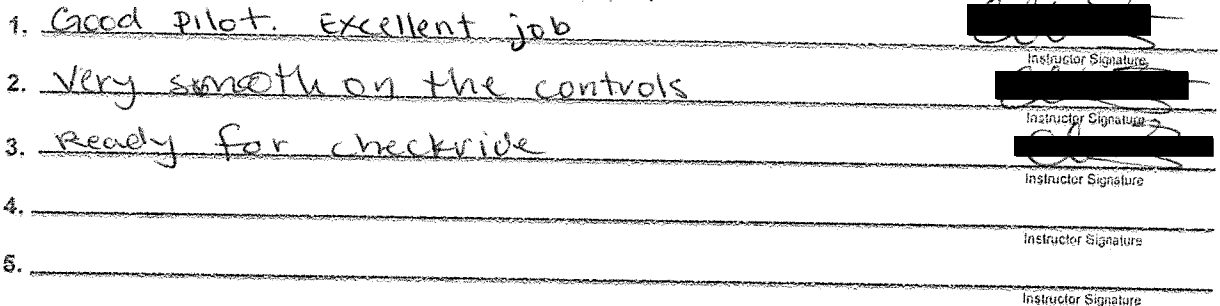 1. Good Pilot. Excellent job
Instructor Signature
2. Very smooth on the controls
Instructor Signature
3. Ready for checkride
Instructor Signature
4.
Instructor Signature
5.
Instructor Signature